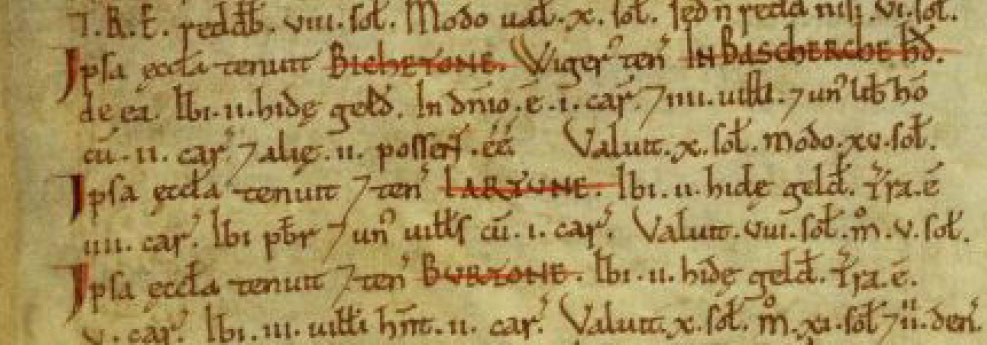 T.R.E. reddeb̄. viii. sol̃. Modo ual̃. x. sol̃. sed n̄ redd̃ nisi. vi. sol̃.
Ipsa ęccl̃a tenuit BICHETONE. Wiger' ten' IN BASCHERCHE HD̄.
de ea. Ibi. ii. hidę geld̃. In dñio. ē. i. car'. ⁊ iiii. uill̃i. ⁊ un' lib̃ hō
cū. ii. car'. ⁊ alię. ii. possenꞇ. ēē. Valuit. x. sol̃. modo. xv. sol̃.
Ipsa ęccl̃a tenuit ⁊ ten' LARTUNE. Ibi. ii. hidę geld̃. T̃ra. ē
iiii. car'. Ibi pb̃r ⁊ un' uill̃s cū. i. car'. Valuit. viii. sol̃. m̊. v. sol̃.
Ipsa ęccl̃a tenuit ⁊ ten' BURTONE. Ibi. ii. hidę geld̃. T̃ra. ē.
v. car'. Ibi. iii. uill̃i hñt. ii. car'. Valuit. x. sol̃. m̊. xi. sol̃ ⁊ ii. den'.